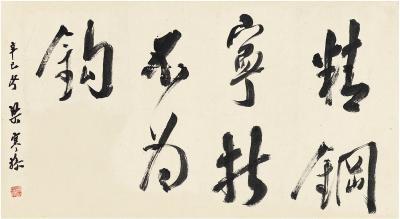 精鋼
寧折
不為
鈎
辛巳冬梁寒操